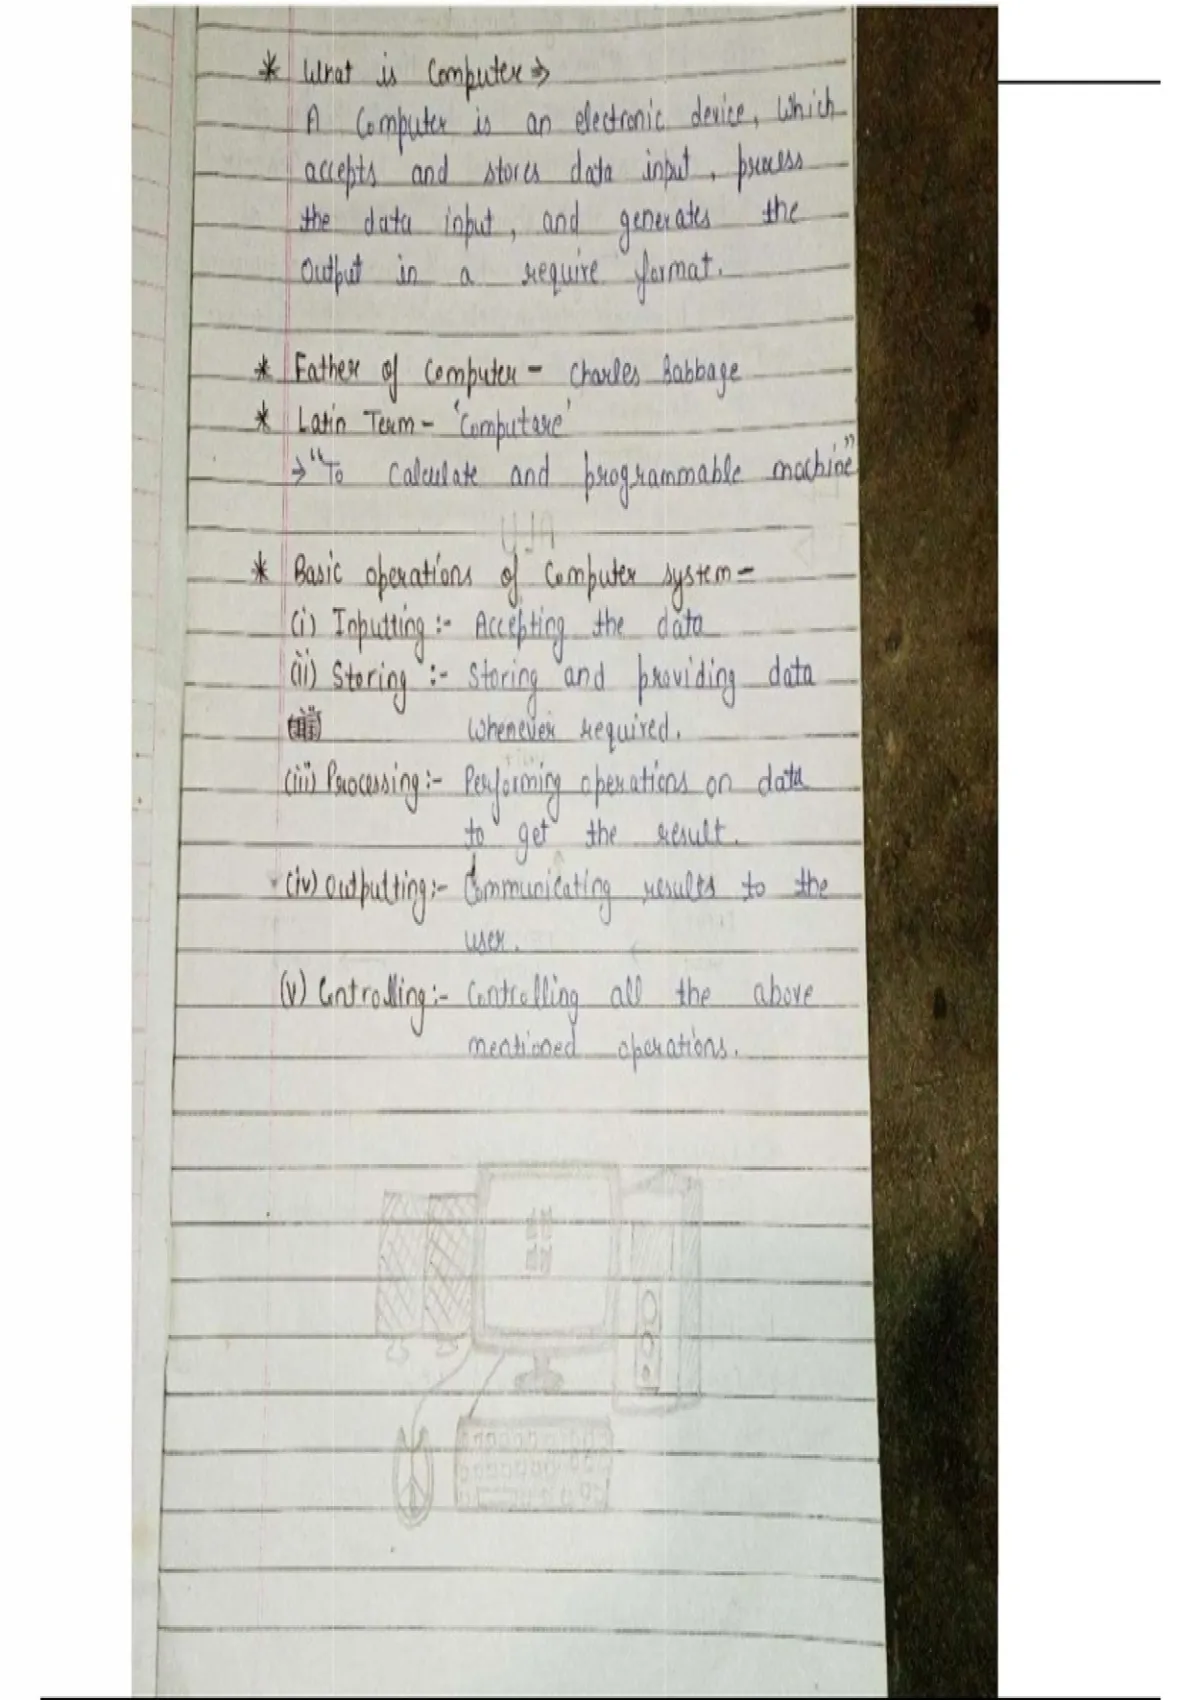 * What is Computer →
A Computer is an electronic device, Which
accepts and stores data input, process
the data input, and generates the
Output in a require format.
* Father of Computer - Charles Babbage
* Latin Term - 'Computare'
→ "To Calculate and programmable machine"
ALU
* Basic operations of Computer system -
(i) Inputting :- Accepting the data
(ii) Storing :- Storing and providing data
whenever required.
(iii) Processing :- Performing operations on data
to get the result.
(iv) Outputting :- Communicating results to the
user.
(v) Controlling :- Controlling all the above
mentioned operations.